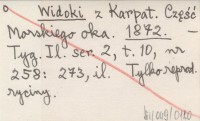 Widoki z Karpat. Część
Morskiego oka. 1872. —
Tyg. Il. ser. 2, t. 10, nr
258: 273, il. Tylko reprod.
ryciny.